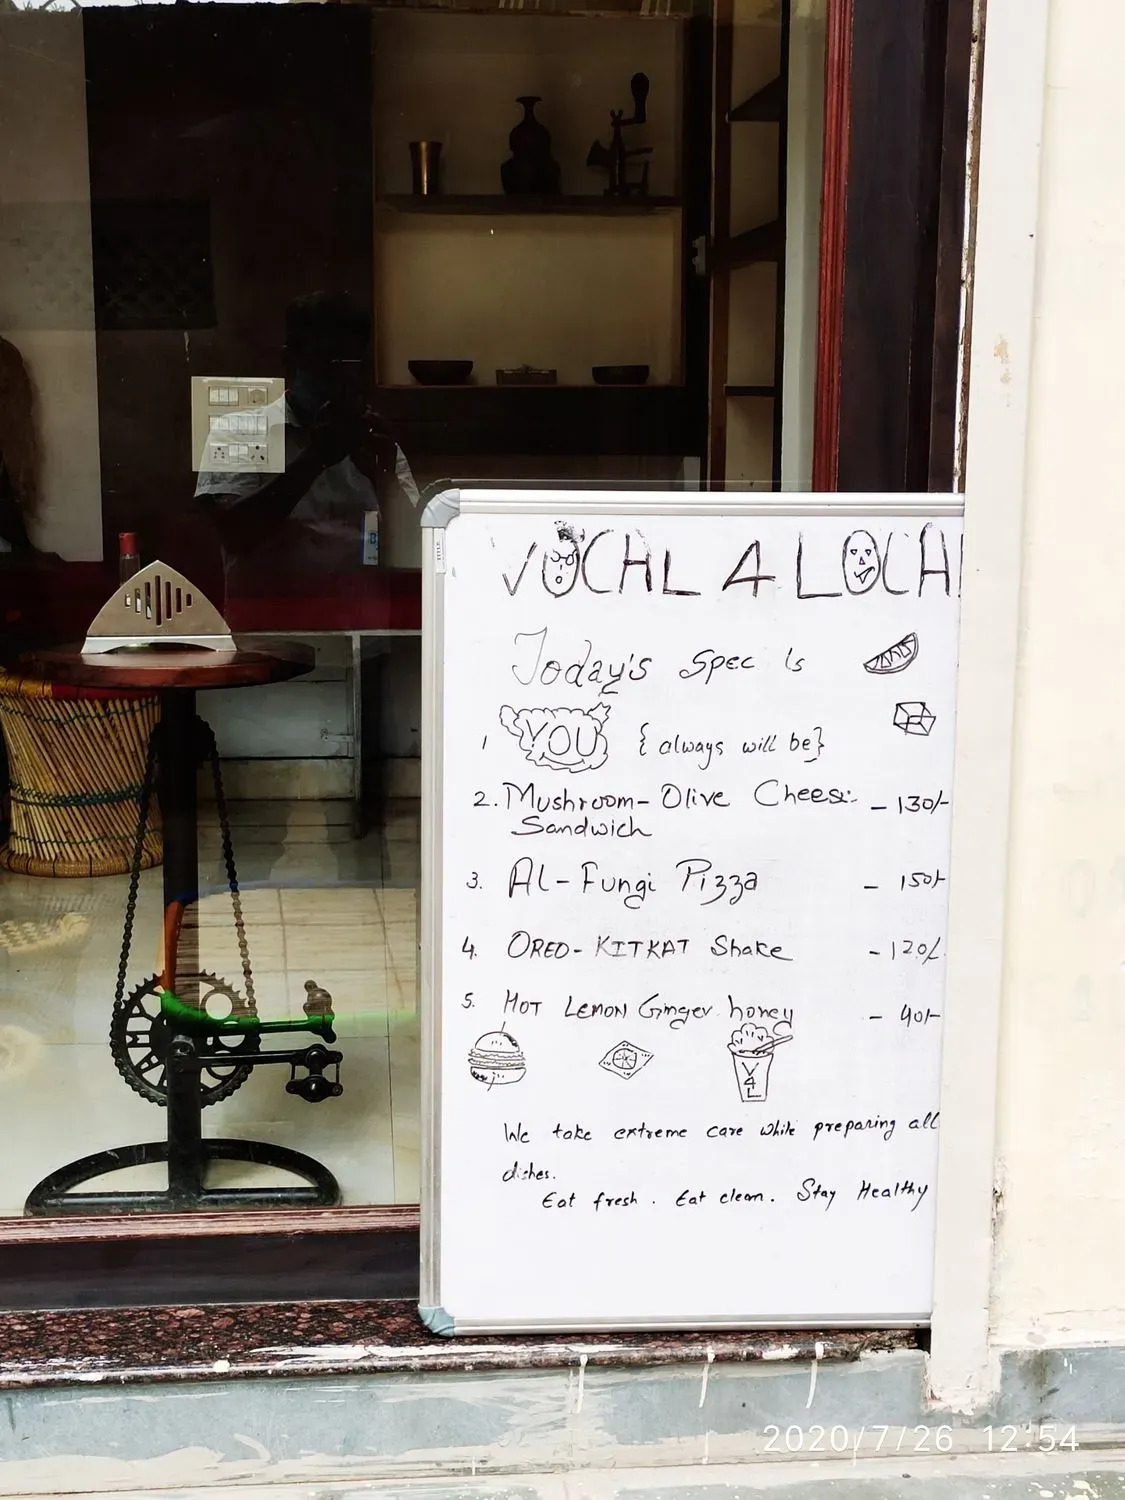 VOCAL 4 LOCAL
Today's Spec is
1 YOU {always will be}
2. Mushroom-Olive Cheese - 130/-
Sandwich
3. Al-Fungi Pizza - 150/-
4. OREO-KITKAT Shake - 120/-
5. HOT LEMON Ginger honey - 40/-
V
4
L
We take extreme care while preparing all
dishes.
Eat fresh. Eat clean. Stay Healthy
2020/7/26 12:54